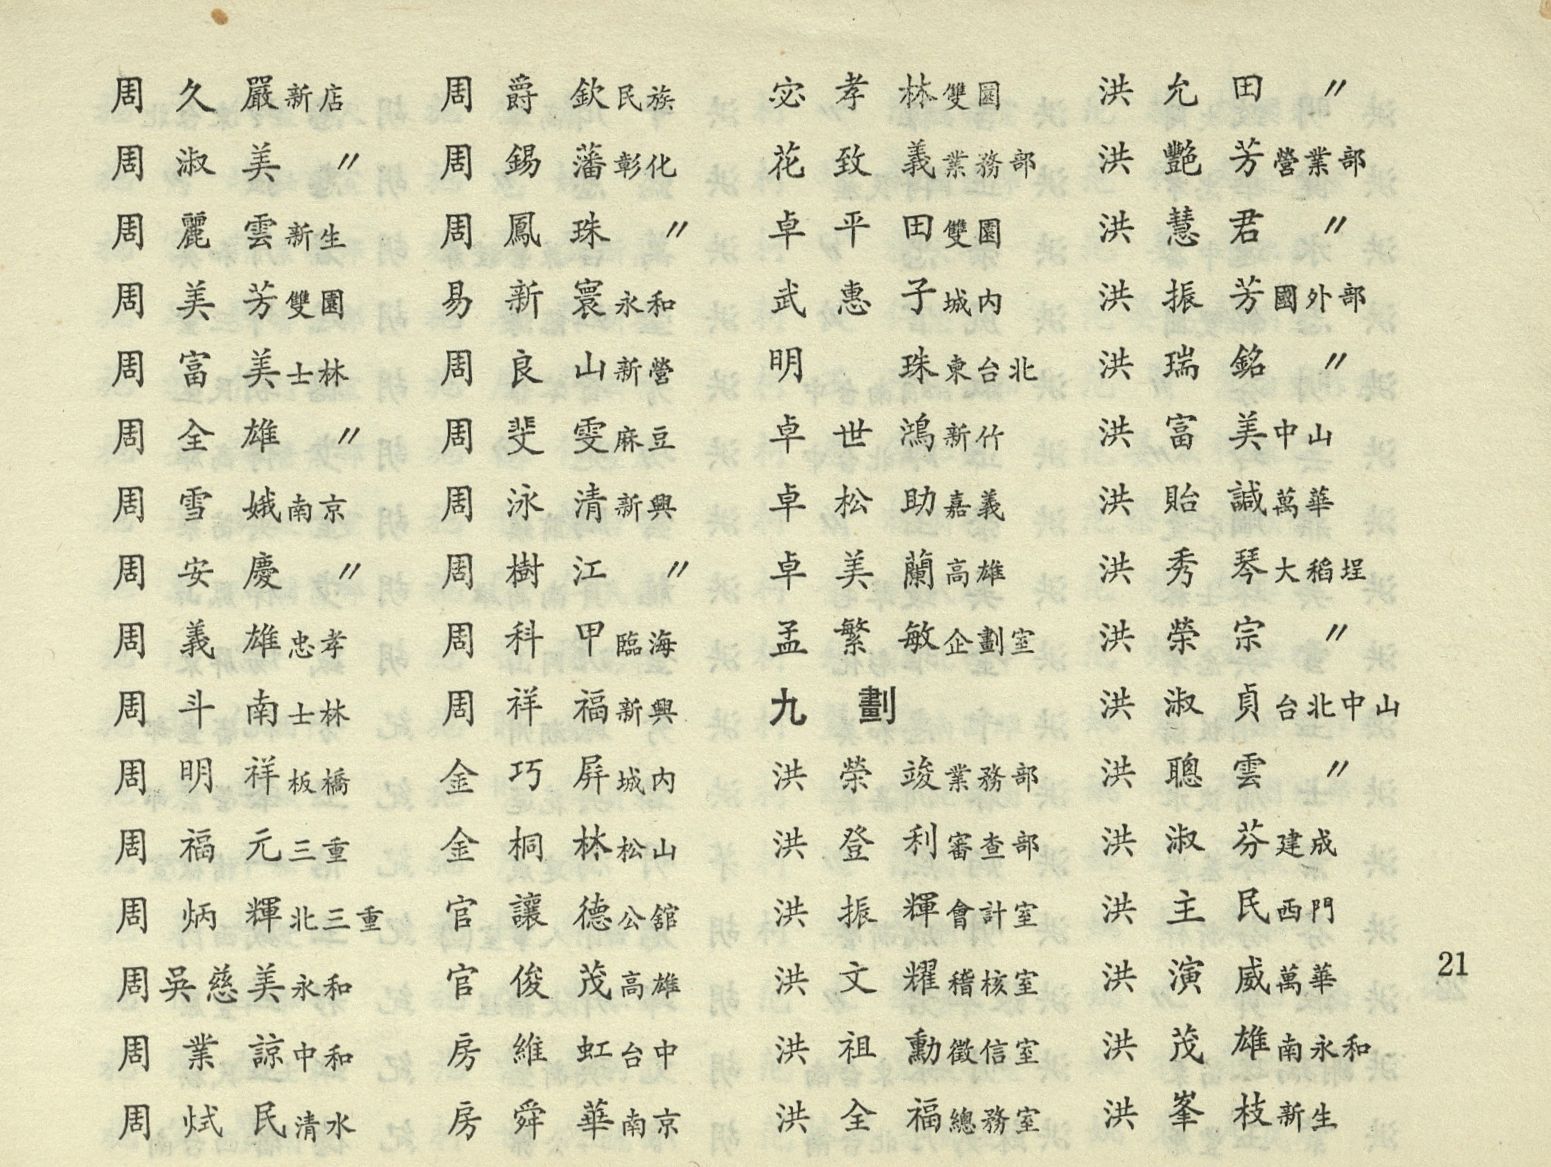 周久嚴新店
周淑美 〃
周麗雲新生
周美芳雙園
周富美士林
周全雄 〃
周雪娥南京
周安慶 〃
周義雄忠孝
周斗南士林
周明祥板橋
周福元三重
周炳輝北三重
周吳慈美永和
周業諒中和
周烒民清水
周爵欽民族
周錫藩彰化
周鳳珠 〃
易新寰永和
周良山新營
周斐雯麻豆
周泳清新興
周樹江 〃
周科甲臨海
周祥福新興
金巧屏城內
金桐林松山
官讓德公館
官俊茂高雄
房維虹台中
房舜華南京
宓孝林雙園
花致義業務部
卓平田雙園
武惠子城內
明 珠東台北
卓世鴻新竹
卓松助嘉義
卓美蘭高雄
孟繁敏企劃室
九 劃
洪榮竣業務部
洪登利審查部
洪振輝會計室
洪文耀稽核室
洪祖勳徵信室
洪全福總務室
洪允田 〃
洪艷芳營業部
洪慧君 〃
洪振芳國外部
洪瑞銘 〃
洪富美中山
洪貽諴萬華
洪秀琴大稻埕
洪榮宗 〃
洪淑貞台北中山
洪聰雲 〃
洪淑芬建成
洪主民西門
洪演威萬華
洪茂雄南永和
洪峯枝新生
21